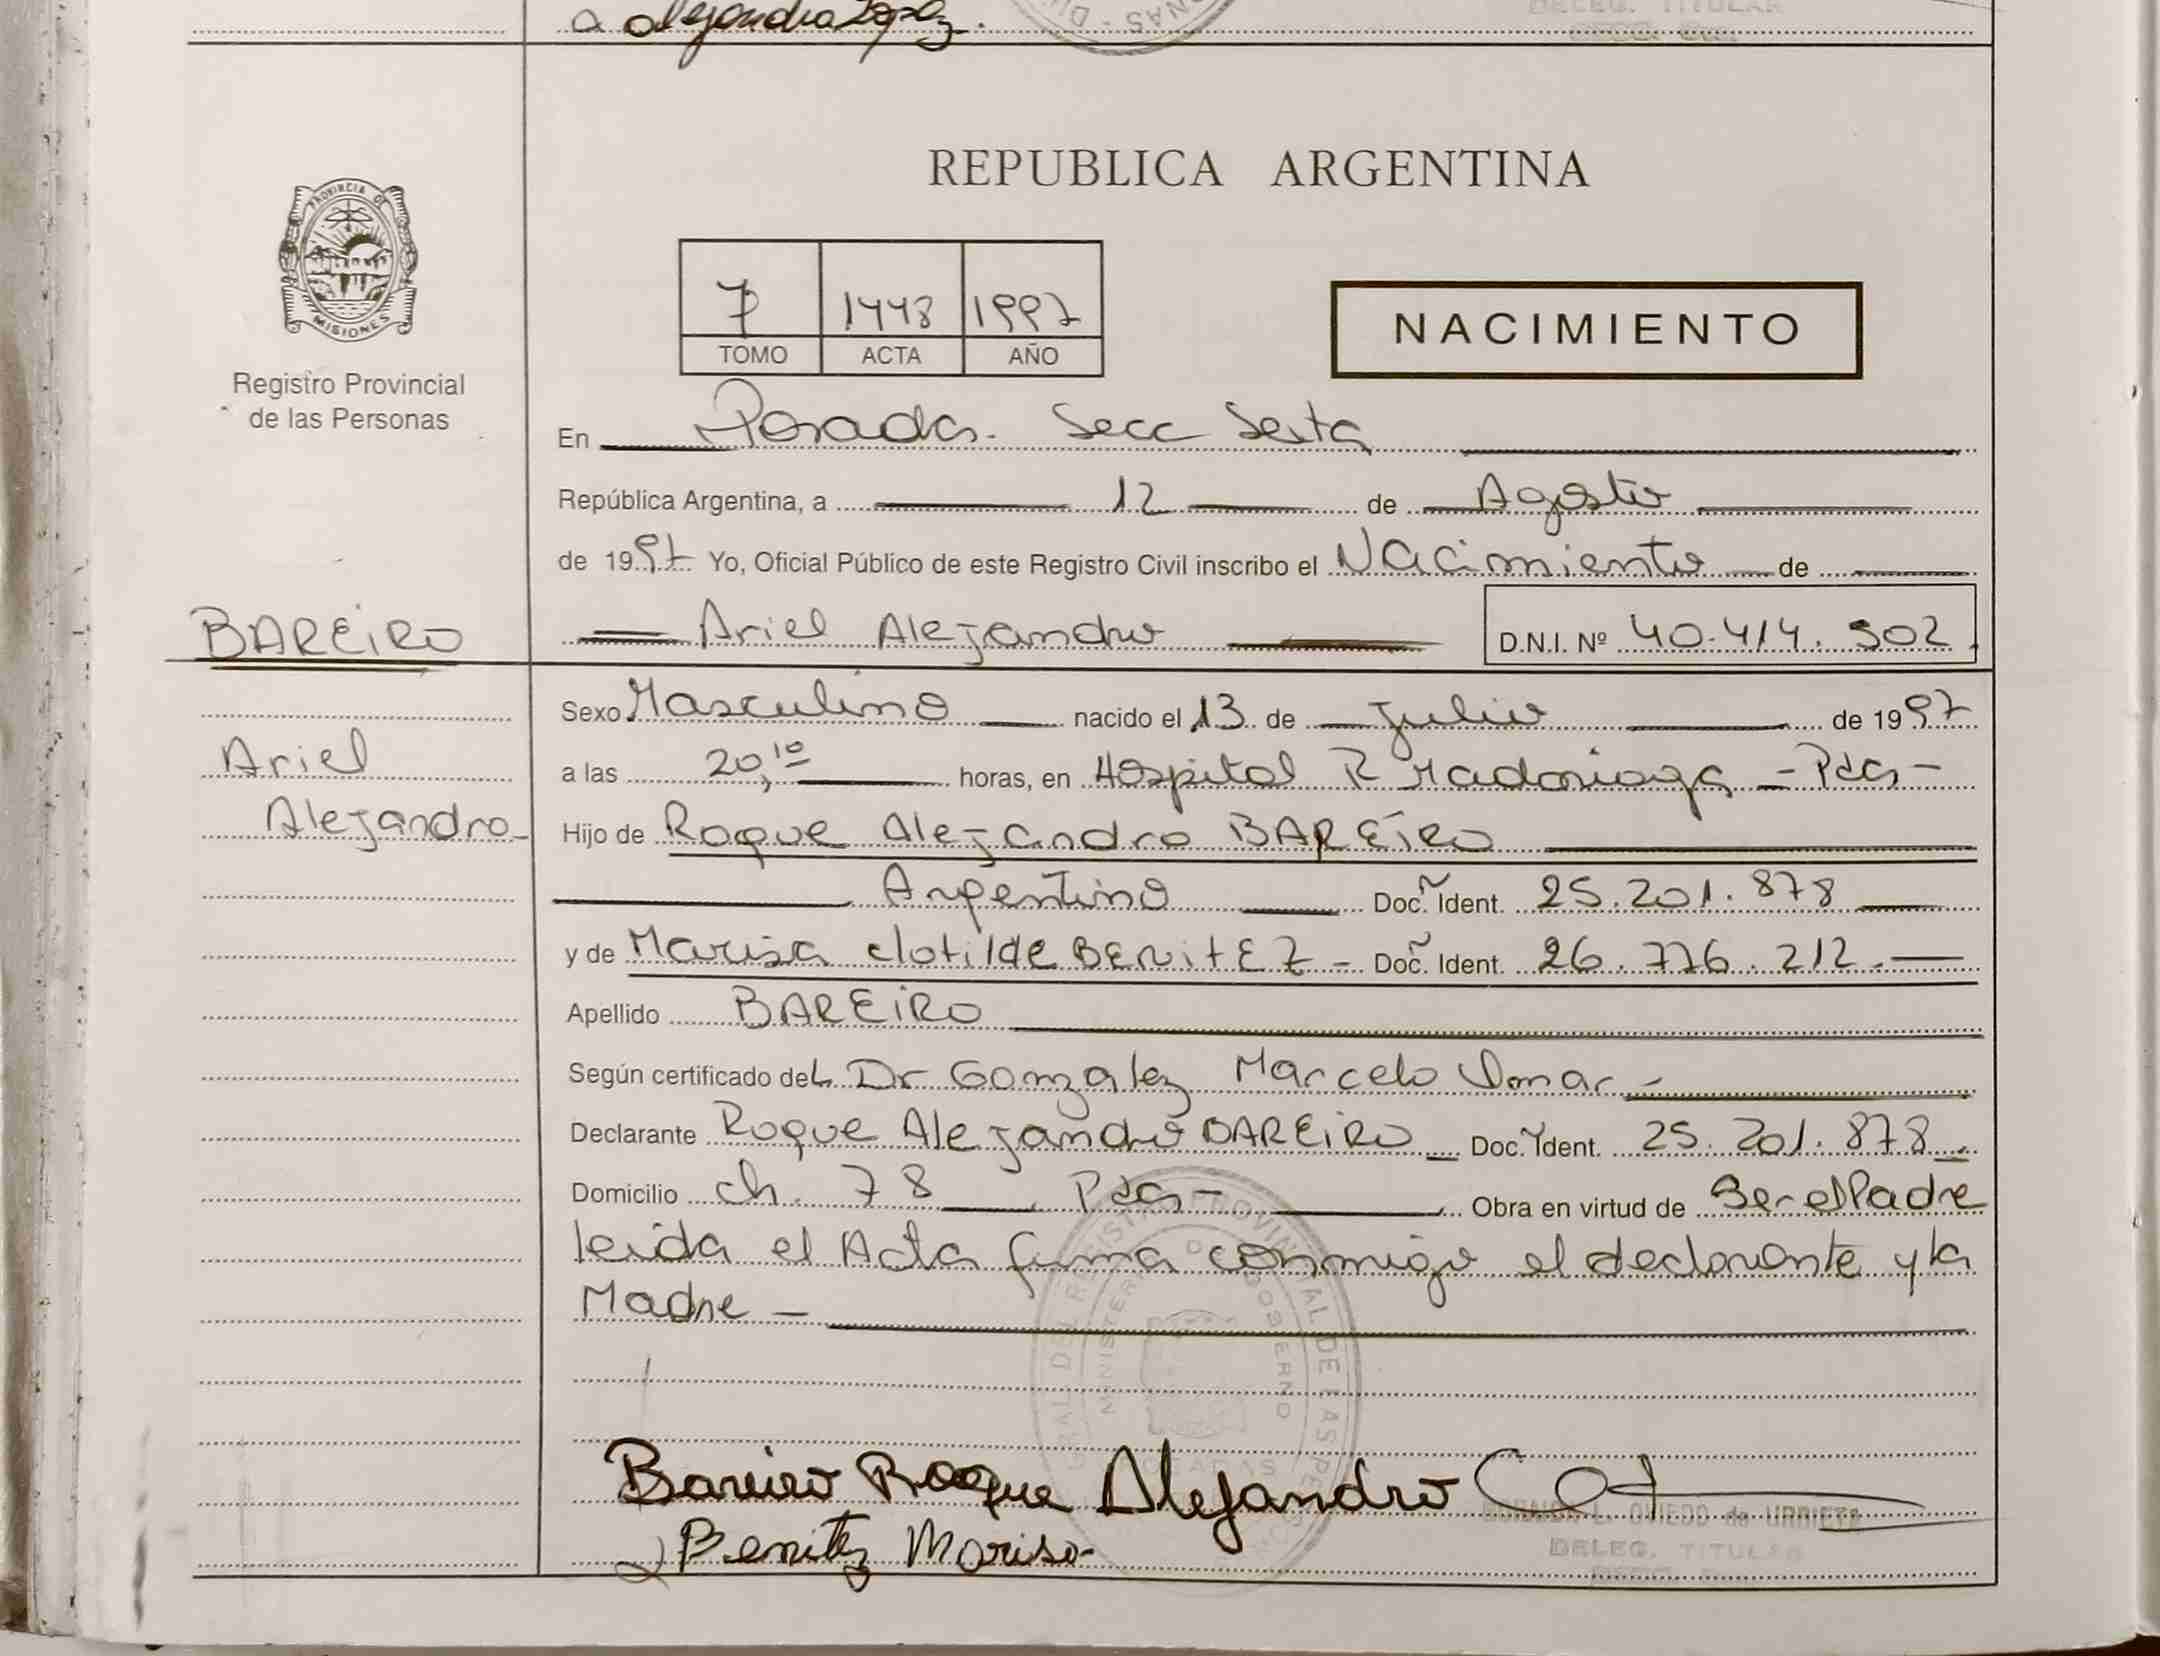 a Alejandra López.
REPUBLICA ARGENTINA
PROVINCIA DE
MISIONES
Registro Provincial
de las Personas
7 1448 1997
TOMO ACTA AÑO
NACIMIENTO
En Posadas. Secc Sexta
República Argentina, a 12 de Agosto
de 1997 Yo, Oficial Público de este Registro Civil inscribo el Nacimiento de
BAREIRO
Ariel Alejandro D.N.I. Nº 40.414.502.
Sexo Masculino nacido el 13 de Julio de 1997
Ariel
a las 20,10 horas, en Hospital R Madariaga - Pdas -
Alejandro
Hijo de Roque Alejandro BAREIRO
Argentino Doc. Ident. 25.201.878
y de Marisa Clotilde BENITEZ - Doc. Ident. 26.776.212.
Apellido BAREIRO
Según certificado del Dr Gonzalez Marcelo Omar -
Declarante Roque Alejandro BAREIRO Doc. Ident. 25.201.878
Domicilio ch. 78 Pdas - Obra en virtud de Ser el Padre
leida el Acta firma conmigo el declarante y la
Madre -
Bareiro Roque Alejandro
L. OVIEDO de URRIETA
Benitez Marisa
DELEG. TITULAR